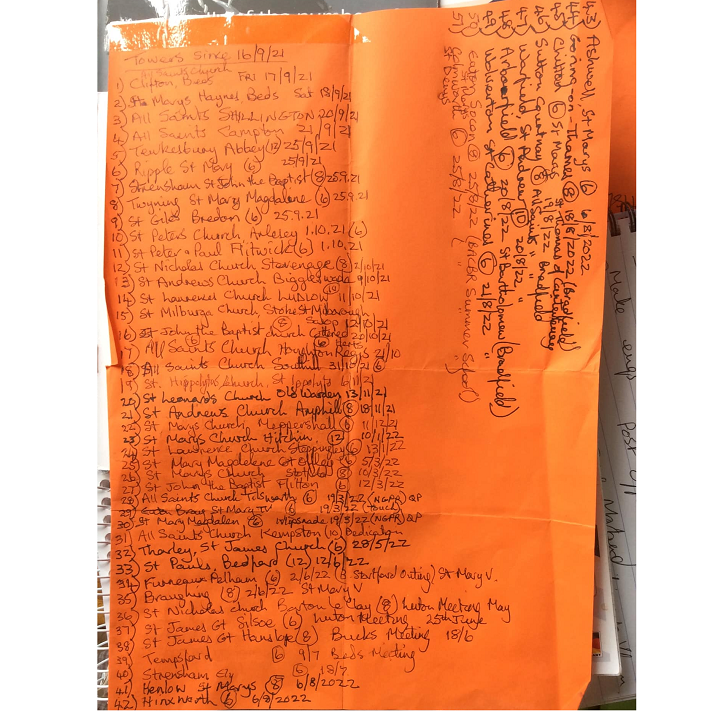 Towers Since 16/9/21
1) Clifton, Beds All Saints Church Fri 17/9/21
2) St Marys Haynes Beds Sat 18/9/21
3) All Saints SHILLINGTON 20/9/21
4) All Saints Campton 21/9/21
5) Tewkesbury Abbey (12) 25/9/21
6) Ripple St Mary (6) 25/9/21
7) Strensham St John the Baptist (8) 25.9.21
8) Twyning St Mary Magdalene (6) 25.9.21
9) St Giles Bredon (6) 25.9.21
10) St Peters Church Arlesey 1.10.21 (6)
11) St Peter & Paul Flitwick (6) 1.10.21
12) St Nicholas Church Stevenage (8) 2/10/21
13) St Andrews Church Biggleswade 9/10/21
14) St Lawrence Church LUDLOW (10) 11/10/21
15) St Milburga Church, Stoke St Milborough
(6) Salop 12/10/21
16) St John the Baptist Church Cottered 20/10/21
(6) Herts
17) All Saints Church Houghton Regis 21/10
18) All Saints Church Southill 31/10/21 (6)
19) St. Hippolytus Church, St Ippolyts 6/11/21
20) St Leonards Church Old Warden 13/11/21
21) St Andrews Church Ampthill (8) 18/11/21
22) St Marys Church, Meppershall (6) 11/12/21
23) St Marys Church Hitchin (12) 10/1/22
24) St Lawrence Church Steppingley (6) 13/1/22
25) St Mary Magdelene Gt (6) 5/3/22
26) St Marys Church Stotfold (8) 10/3/22
27) St John the Baptist Flitton (6) 12/3/22
28) All Saints Church Tilsworth (6) 19/3/22 (NGPR) QP
29) St Mary TV (6) 19/3/22 (Touch)
30) St Mary Magdalen (6) Whipsnade 19/3/22 (NGPR) QP
31) All Saints Church Kempston (10) Dedication
32) Thorley, St James Church (6) 28/5/22
33) St Pauls, Bedford (12) 12/6/22
34) Furneux Pelham (8) 2/6/22 (B Stortford Outing) St Mary V.
35) Braughing (8) 2/6/22 St Mary V
36) St Nicholas church Barton le Clay (8) Luton Meeting May
37) St James Gt Silsoe (6) Luton Meeting 25th June
38) St James Gt Hanslope (8) Bucks Meeting 18/6
39) Tempsford (6) 9/7 Beds Meeting
40) Strensham (6) 18/7
41) Henlow St Marys (8) 6/8/2022
42) Hinxworth (6) 6/8/2022
43) Ashwell, St Marys (6) 6/8/2022
44) Goring-on-Thames (8) 18/8/2022 (Bradfield)
St Thomas of Canterbury
45) Chilton (6) St Marys 19/8/22 Bradfield
46) Sutton Courtenay (8) All Saints "
47) Warfield, St Andrew (10) 20/8/22 "
48) Arborfield (6) 20/8/22 St Bartholomew (Bradfield)
49) Wolverton St Catherines (6) 21/8/22 "
50) Eaton Socon (8) 25/8/22 (Bucks Summer Safari)
51) Colmworth (6) 25/8/22 ( "
St Denys
Make
Post